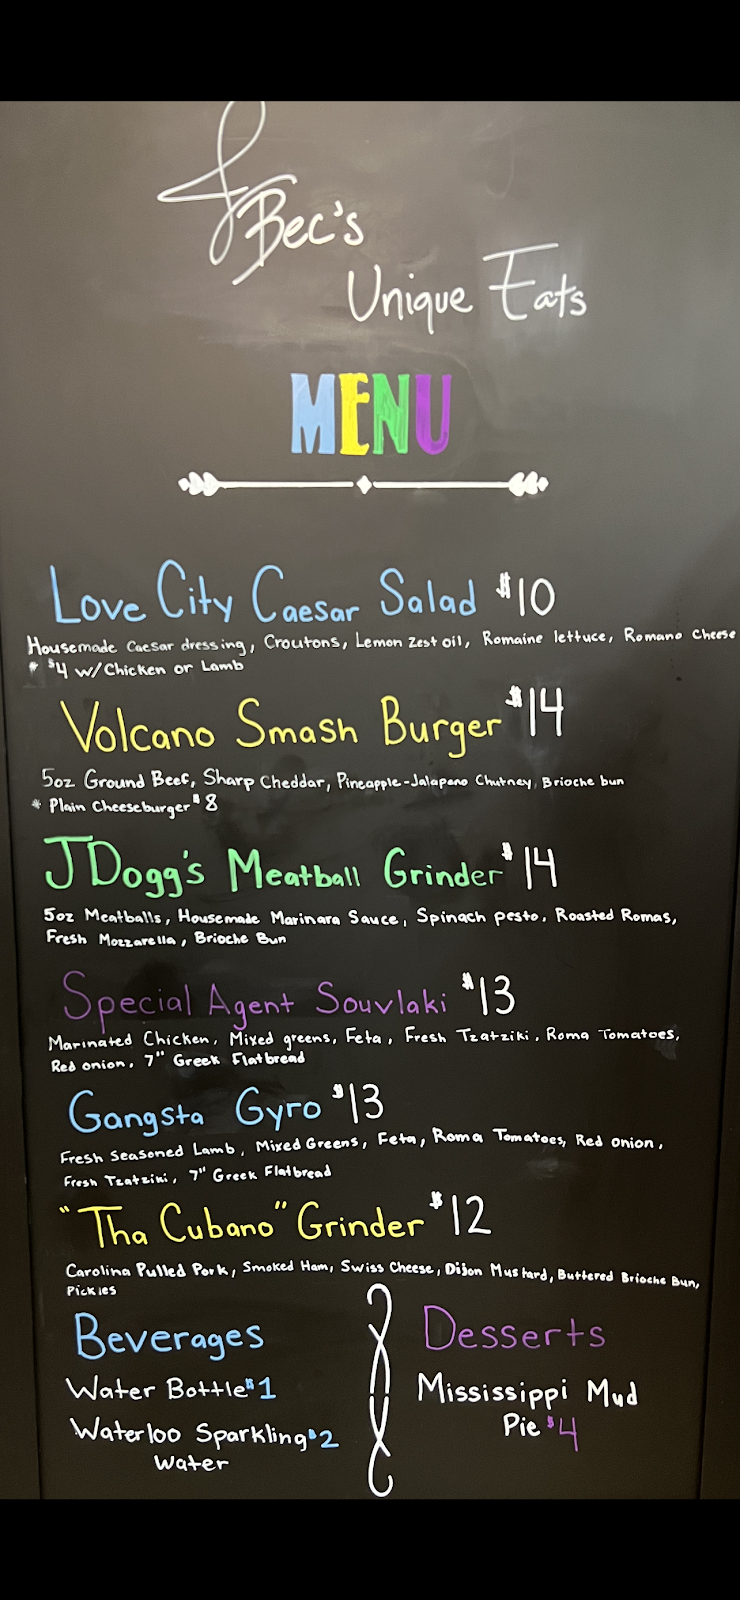 JBec's
Unique Eats
MENU
Love City Caesar Salad $10
Housemade Caesar dressing, Croutons, Lemon Zest oil, Romaine lettuce, Romano Cheese
* $4 w/Chicken or Lamb
Volcano Smash Burger $14
5oz Ground Beef, Sharp Cheddar, Pineapple-Jalapeno Chutney, Brioche bun
* Plain Cheeseburger $8
JDogg's Meatball Grinder $14
5oz Meatballs, Housemade Marinara Sauce, Spinach pesto, Roasted Romas,
Fresh Mozzarella, Brioche Bun
Special Agent Souvlaki $13
Marinated Chicken, Mixed greens, Feta, Fresh Tzatziki, Roma Tomatoes,
Red onion, 7" Greek Flatbread
Gangsta Gyro $13
Fresh Seasoned Lamb, Mixed Greens, Feta, Roma Tomatoes, Red onion,
Fresh Tzatziki, 7" Greek Flatbread
"Tha Cubano" Grinder $12
Carolina Pulled Pork, Smoked Ham, Swiss Cheese, Dijon Mustard, Buttered Brioche Bun,
Pickles
Beverages
Water Bottle $1
Waterloo Sparkling $2
Water
Desserts
Mississippi Mud
Pie $4